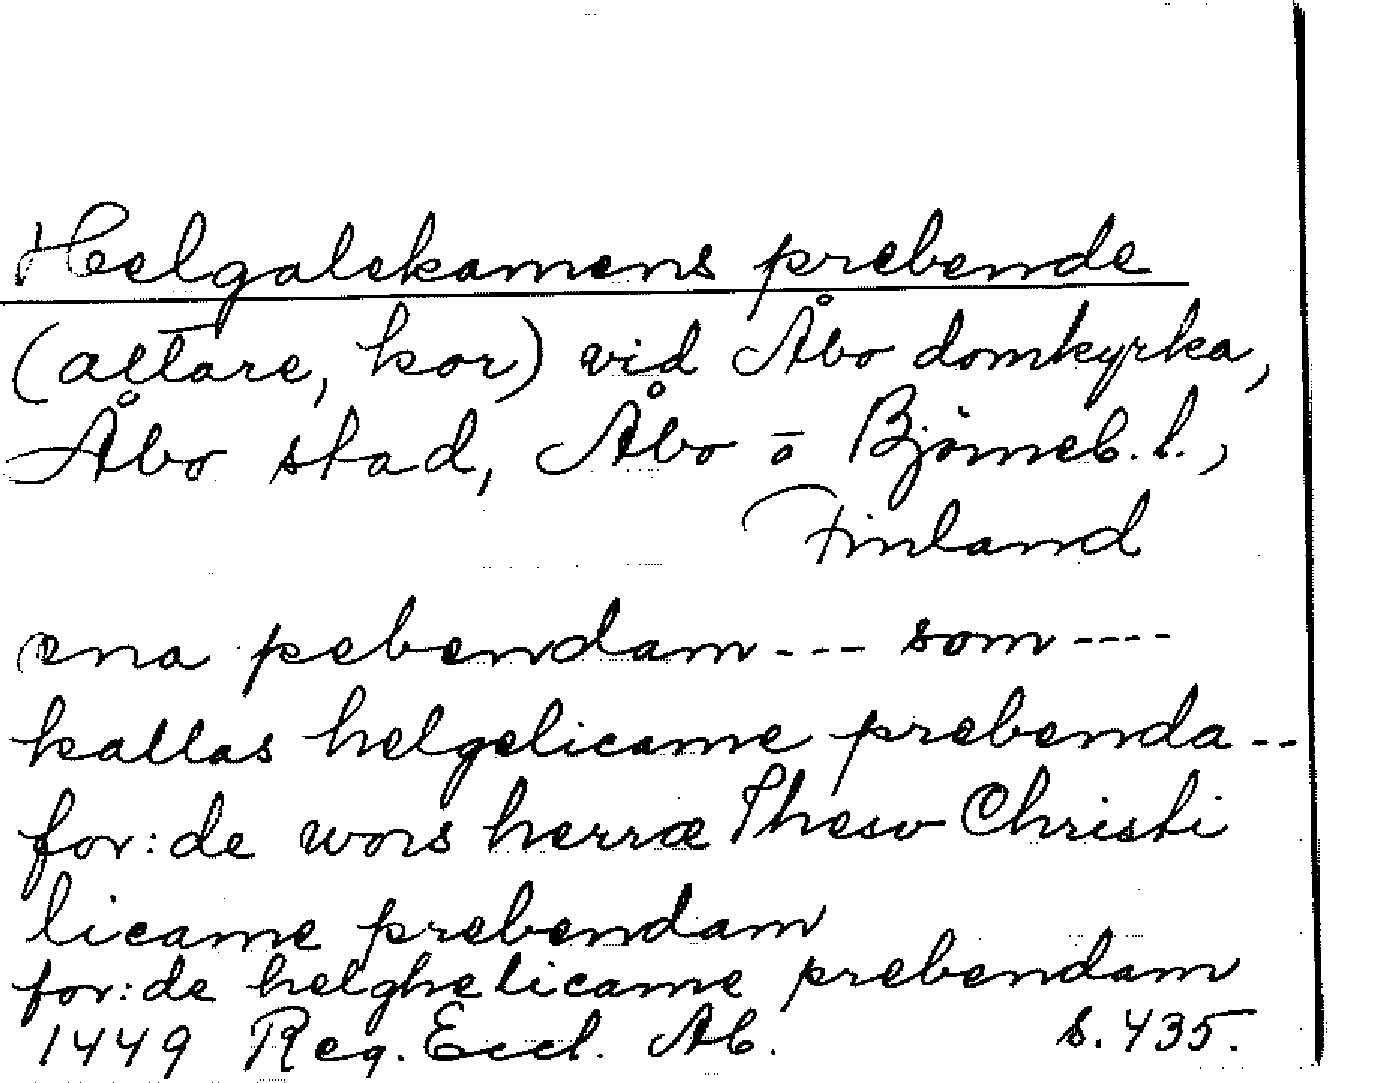 Helgalekamens prebende
(altare, kor) vid Åbo domkyrka,
Åbo stad, Åbo o Björneb. l.,
Finland
ena pebendam --- som ----
kallas helgelicame prebenda --
for:de wors herræ Jhesv Christi
licame prebendam
for:de helghelicame prebendam
1449 Reg. Eccl. Ab. s. 435.